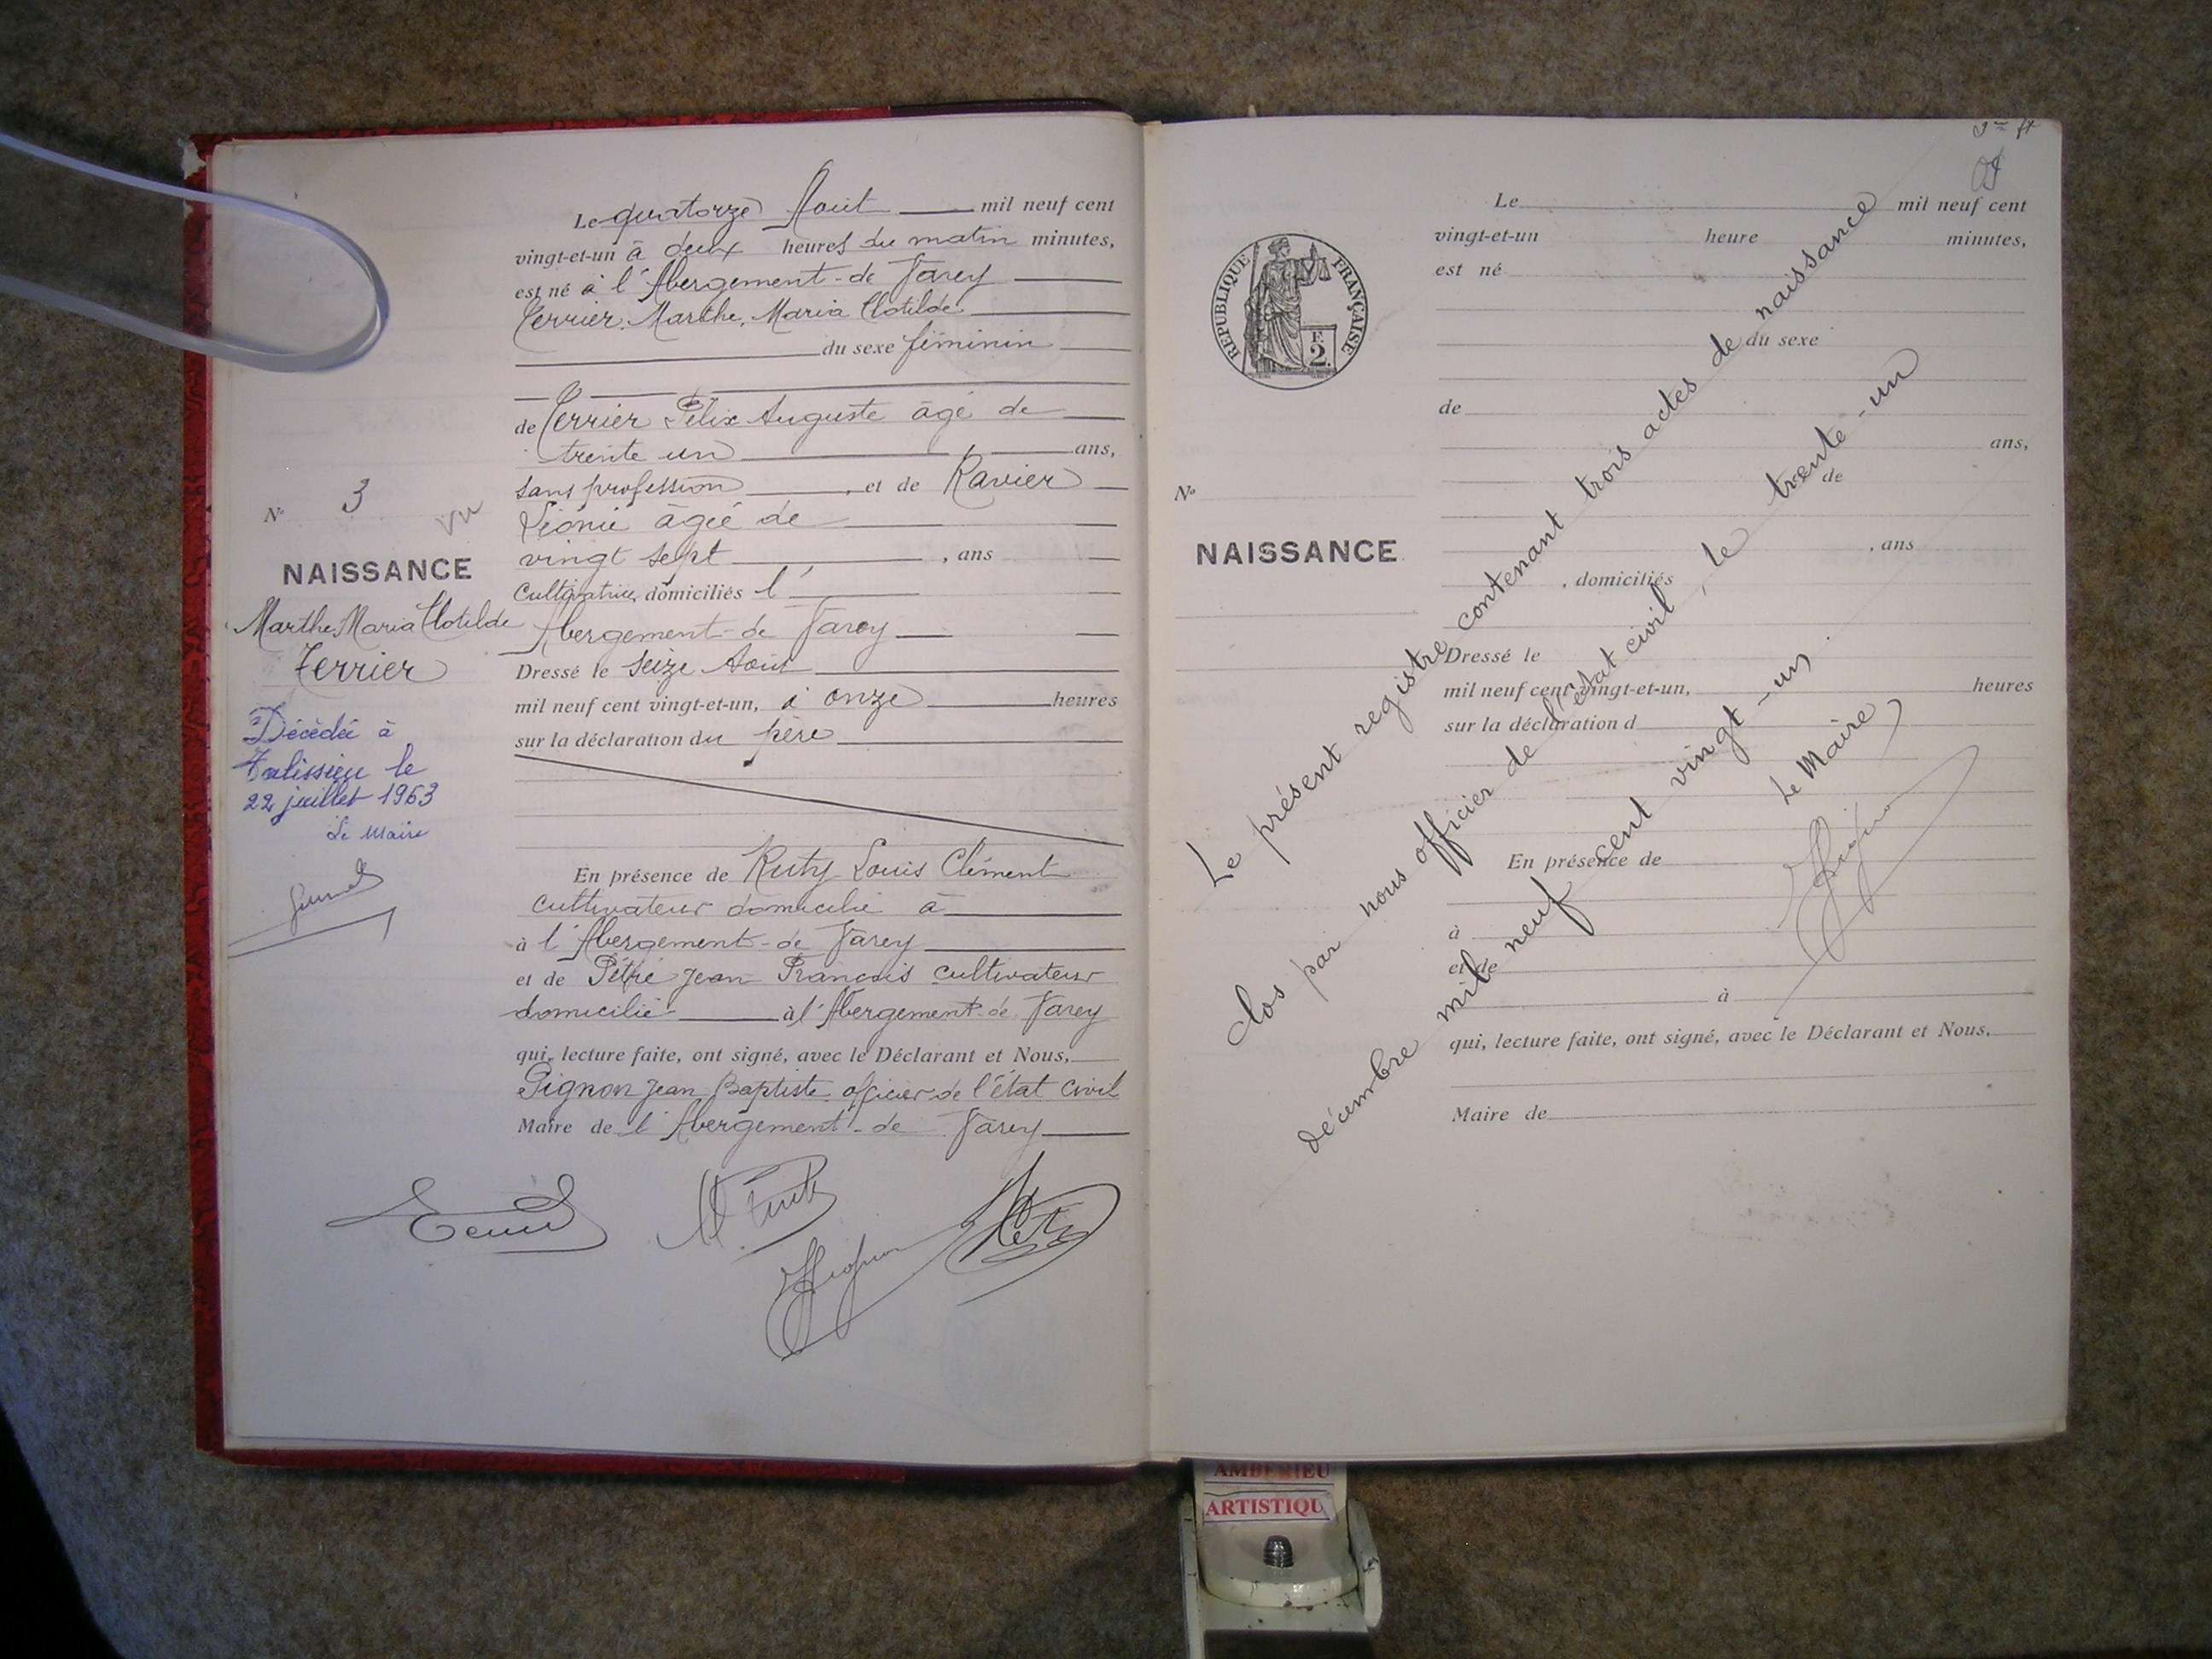 Le quatorze Août mil neuf cent
vingt-et-un à deux heures du matin minutes,
est né à l'Abergement-de Varey
Terrier Marthe, Maria Clotilde
du sexe féminin
de Terrier Félix Auguste âgé de
trente un ans,
sans profession, et de Ravier
Léonie âgée de
vingt sept, ans
Cultivatrice, domiciliés l'
Abergement-de Varey
Dressé le seize Août
mil neuf cent vingt-et-un, à onze heures
sur la déclaration du père
En présence de Ruty Louis Clément
cultivateur domicilié à
à l'Abergement-de Varey
et de Jean François cultivateur
domicilié à l'Abergement-de Varey
qui, lecture faite, ont signé, avec le Déclarant et Nous,
Pignon Jean Baptiste officier de l'état civil
Maire de l'Abergement-de Varey
N° 3
Vu
NAISSANCE
Marthe Maria Clotilde
Terrier
Décédée à
Talissieu le
22 juillet 1963
Le Maire
RÉPUBLIQUE FRANÇAISE
F.
2
N°
NAISSANCE
Le mil neuf cent
vingt-et-un heure minutes,
est né
du sexe
de
ans,
de
, ans
, domiciliés
Dressé le
mil neuf cent vingt-et-un, heures
sur la déclaration d
En présence de
à
et de
à
qui, lecture faite, ont signé, avec le Déclarant et Nous,
Maire de
Le présent registre contenant trois actes de naissance
clos par nous officier de l'état civil, le trente-un
décembre mil neuf cent vingt-un.
Le Maire,
AMBERIEU
ARTISTIQU